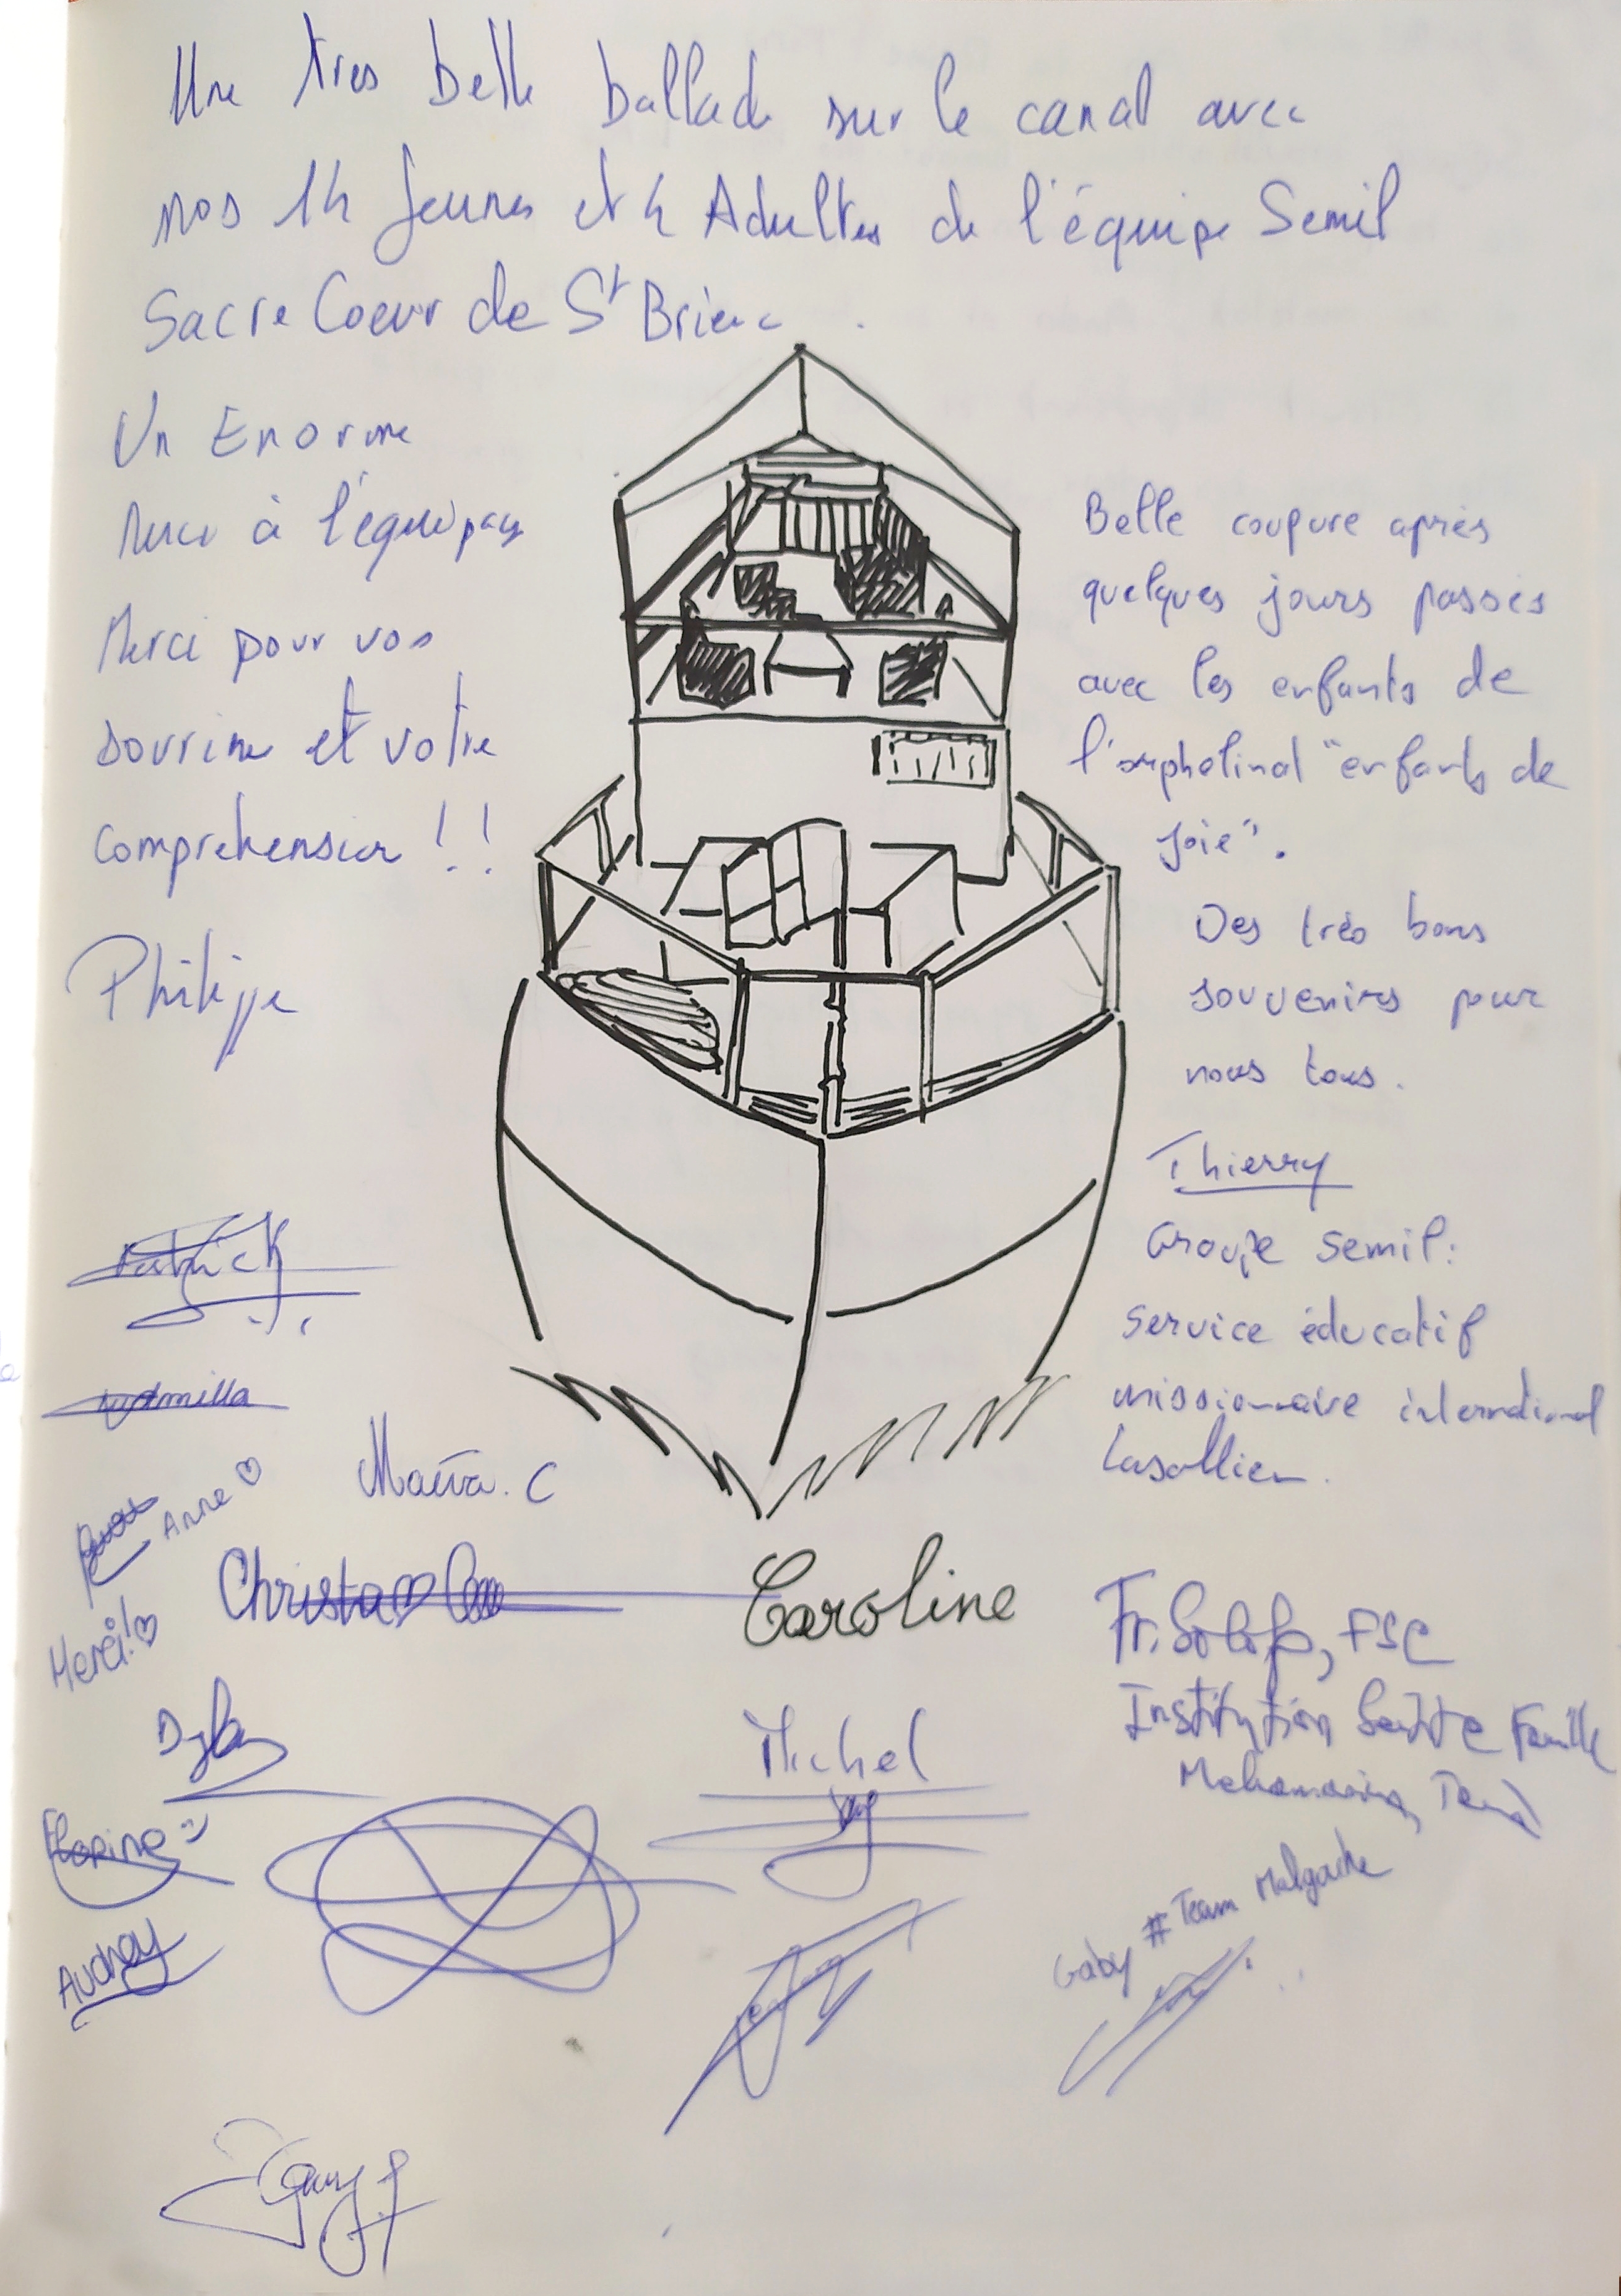 Une tres belle ballade sur le canal avec
nos 14 Jeunes et 4 Adultes de l'équipe Semil
Sacre Coeur de St Brieuc.
Un Enorme
Merci à l'équipage
Merci pour vos
sourire et votre
comprehension !!
Philippe
Belle coupure après
quelques jours passés
avec les enfants de
l'orphelinat "enfants de
joie".
Des très bons
souvenirs pour
nous tous.
Thierry
Groupe semil:
service éducatif
missionnaire international
Lasallien.
Patrick
Ludmilla
Anne ♡
Maëva. C
Merci! ♡
Christa ♡
Caroline
Fr. Solofo, FSC
Institution Sainte Famille
Dylan
Michel
Florine :)
Audrey
Gaby # Team Malgache